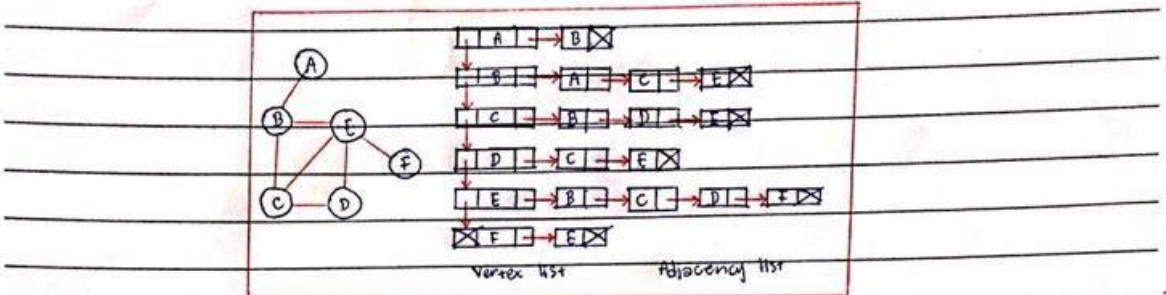 A
B E
F
C D
A B
B A C E
C B D E
D C E
E B C D F
F E
Vertex list Adjacency list